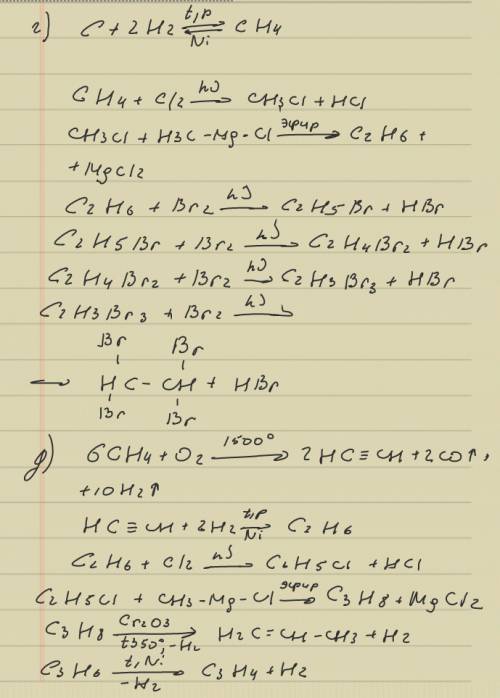 г) C + 2H2 ⇌ CH4 (t,p / Ni)
CH4 + Cl2 →(hν) CH3Cl + HCl
CH3Cl + H3C-Mg-Cl →(эфир) C2H6 +
+ MgCl2
C2H6 + Br2 →(hν) C2H5Br + HBr
C2H5Br + Br2 →(hν) C2H4Br2 + HBr
C2H4Br2 + Br2 →(hν) C2H3Br3 + HBr
C2H3Br3 + Br2 →(hν)
Br Br
HC - CH + HBr
Br Br
д) 6CH4 + O2 →(1500°) 2HC≡CH + 2CO↑,
+10H2↑
HC≡CH + 2H2 →(t,p / Ni) C2H6
C2H6 + Cl2 →(hν) C2H5Cl + HCl
C2H5Cl + CH3-Mg-Cl →(эфир) C3H8 + MgCl2
C3H8 →(Cr2O3 / t350°, -H2) H2C=CH-CH3 + H2
C3H6 →(t,Ni / -H2) C3H4 + H2